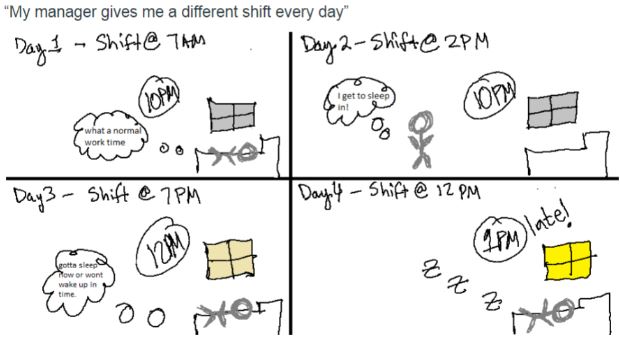 “My manager gives me a different shift every day”
Day 1 - Shift @ 7AM
10PM
what a normal
work time
Day 2 - Shift @ 2PM
I get to sleep
in!
10PM
Day 3 - Shift @ 7PM
12PM
gotta sleep
now or wont
wake up in
time.
Day 4 - Shift @ 12 PM
1PM
late!
z
z
z